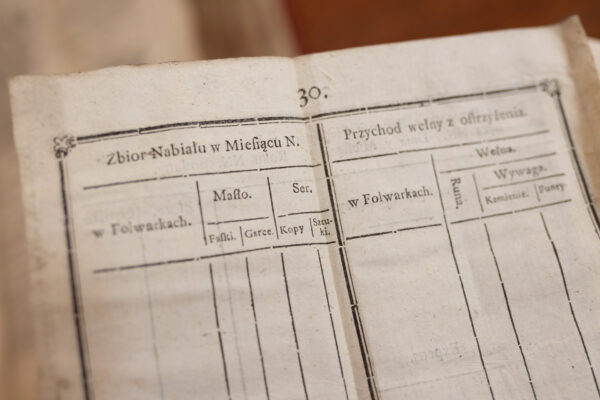 30.
Zbior Nabiału w Mieſiącu N.
w Folwarkach.
Maſło.
Ser.
Faſki.
Garce.
Kopy
Sztu-
ki.
Przychod wełny z oſtrzyżenia.
w Folwarkach.
Wełna.
Runa.
Wywaga.
Kamienie.
Funty